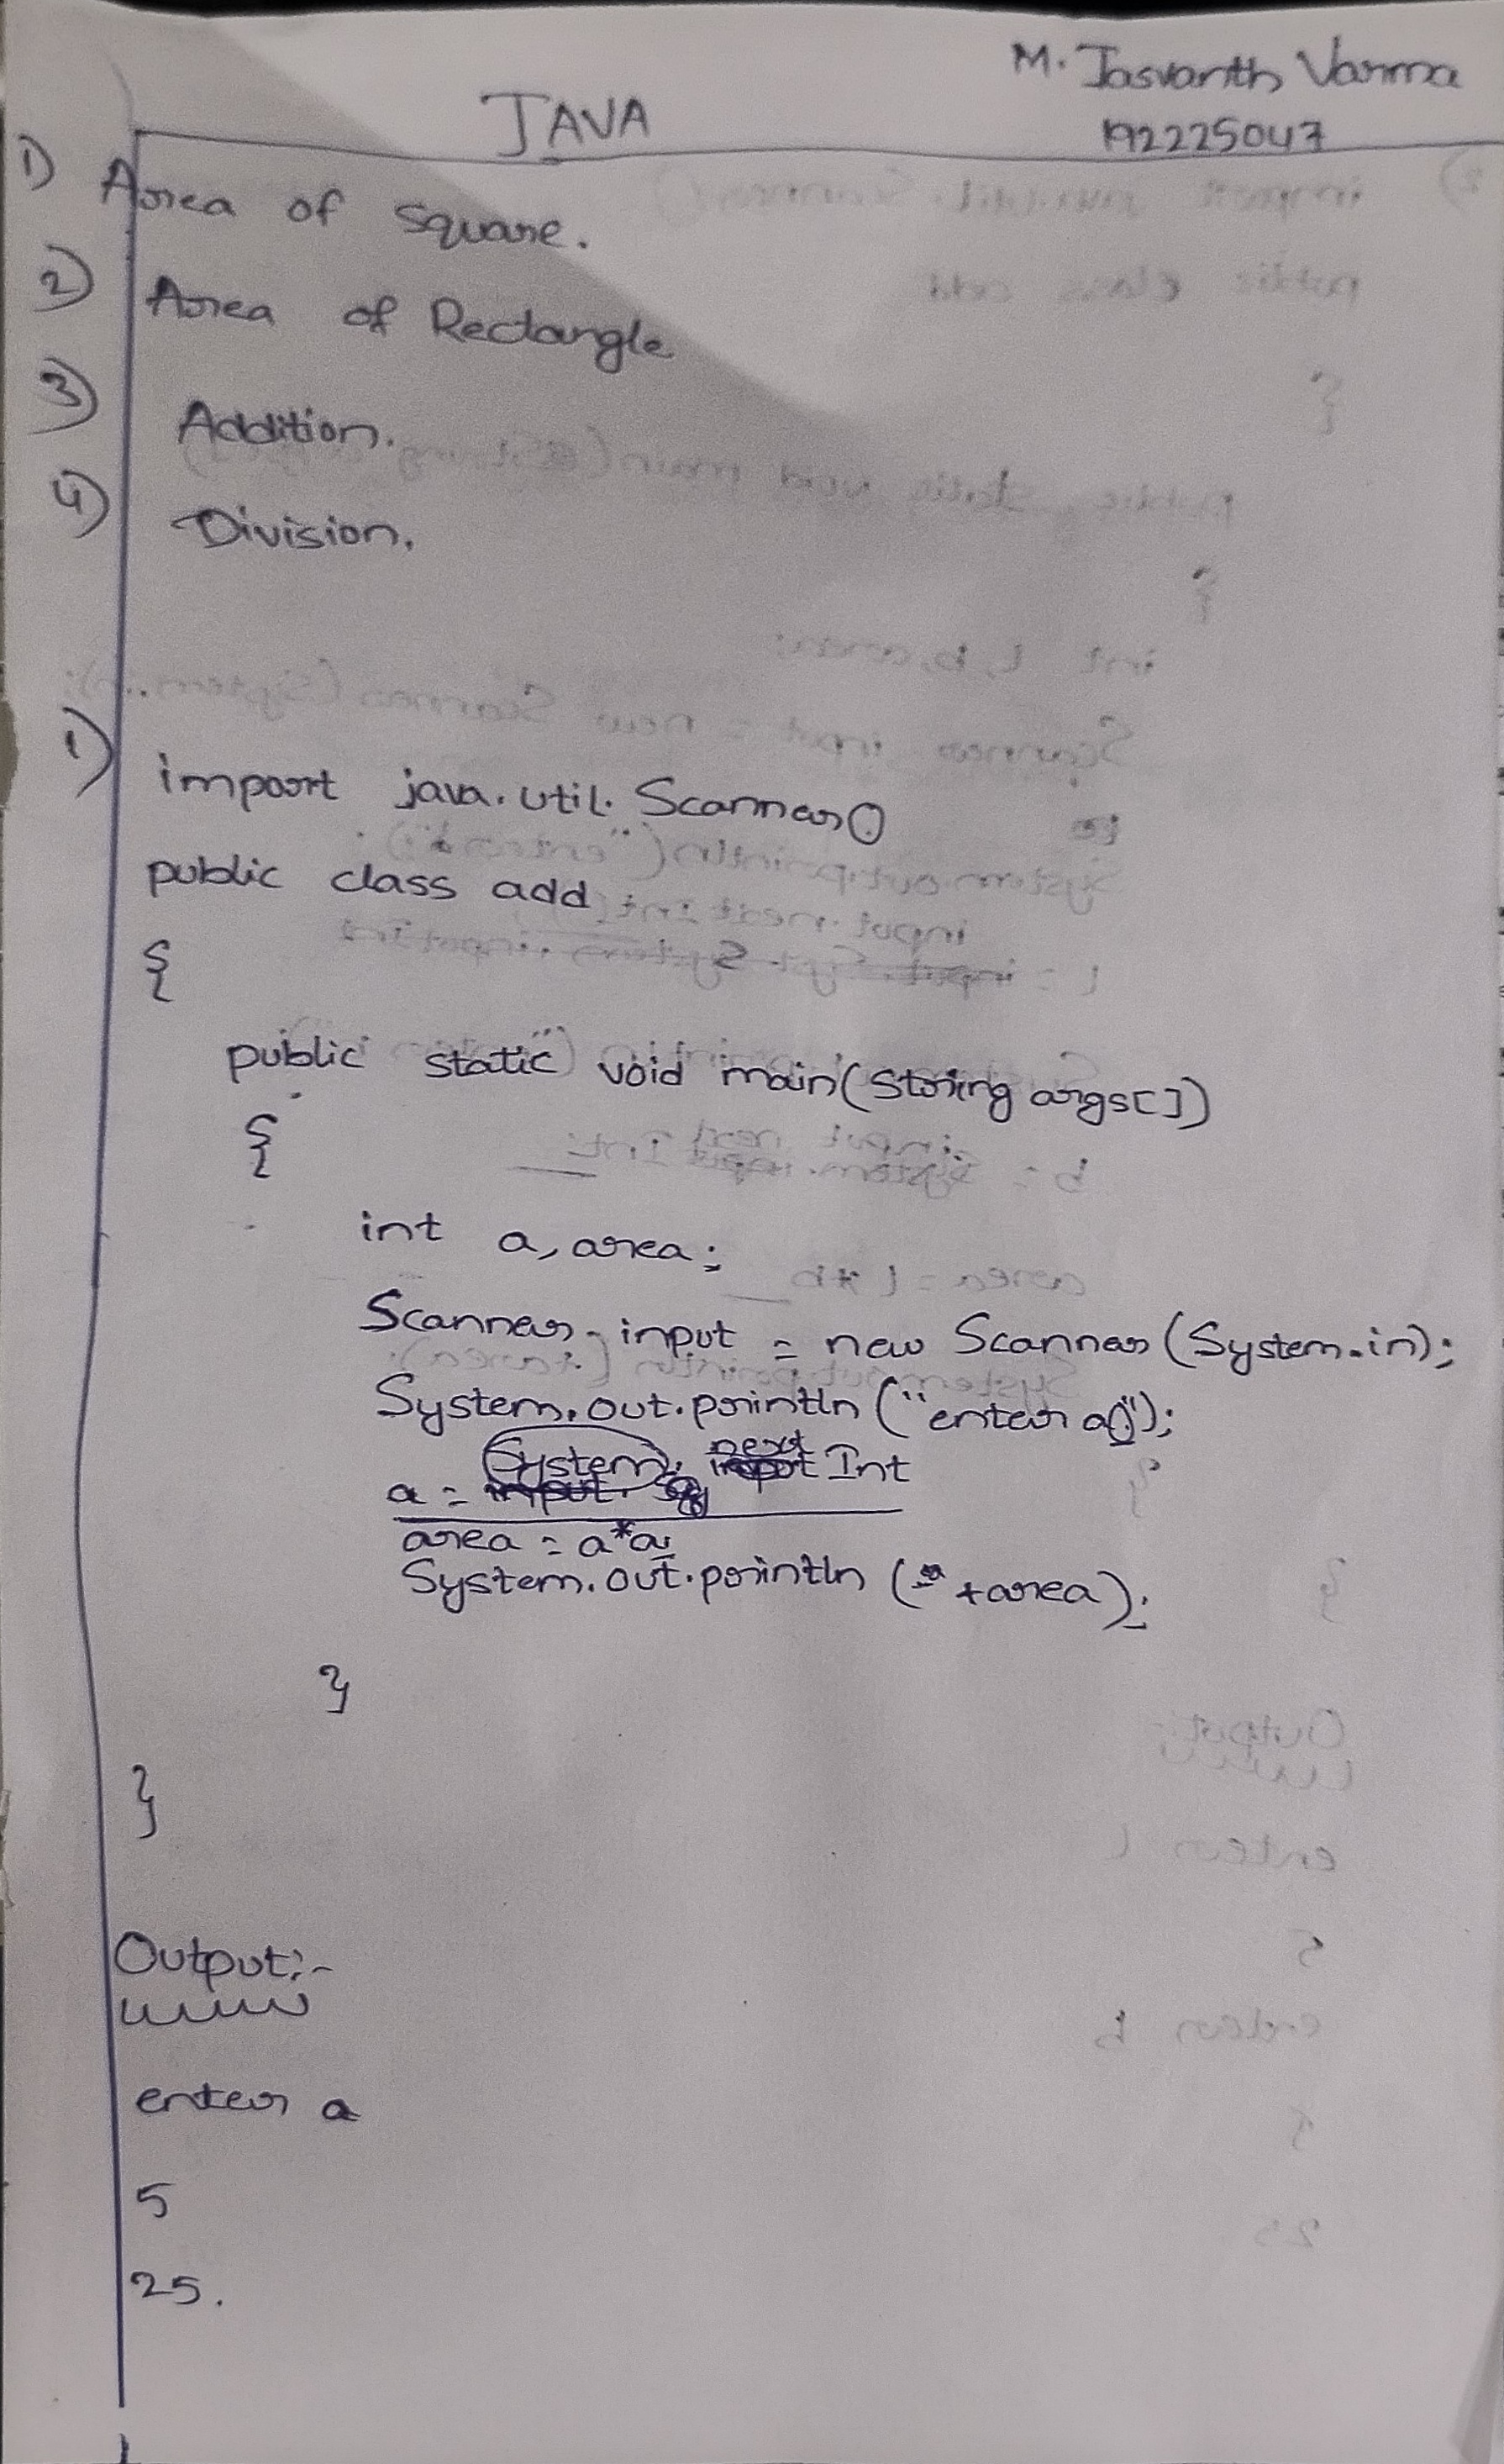 M. Jasvanth Varma
JAVA
192225047
1) Area of square.
2) Area of Rectangle
3) Addition.
4) Division.
1) import java.util.Scanner()
public class add
{
public static void main(String args[])
{
int a, area;
Scanner input = new Scanner (System.in);
System.out.println ("enter a");
System. next Int
a =
area = a*a;
System.out.println ( +area);
}
}
Output:-
enter a
5
25.